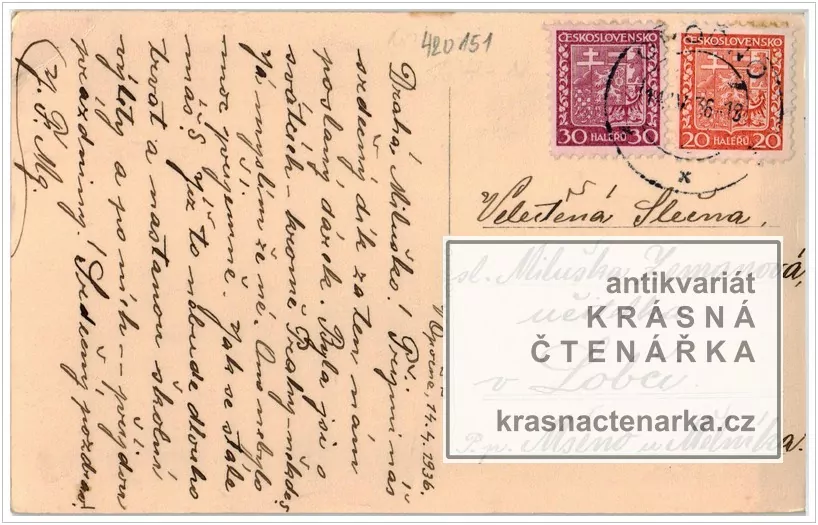 420151
ČESKOSLOVENSKO
30 HALÉŘŮ 30
ČESKOSLOVENSKO
20 HALÉŘŮ 20
V Opočně, 14.4.1936.
Drahá Miluško! Přijmi náš
srdečný dík za ten nám
poslaný dárek. Byla jsi o
svátcích – kromě Prahy – někde?
Já myslím že ne. Ono nebylo
moc příjemně. Jak se stále
máš? Již to nebude dlouho
trvat a nastanou školní
výlety a po nich – – přijdou
prázdniny! Srdečný pozdrav!
Velectěná Slečna,
sl. Miluška Zemanová,
učitelka
v Lobči.
P. p. Mšeno u Mělníka.
antikvariát
KRÁSNÁ
ČTENÁŘKA
krasnactenarka.cz